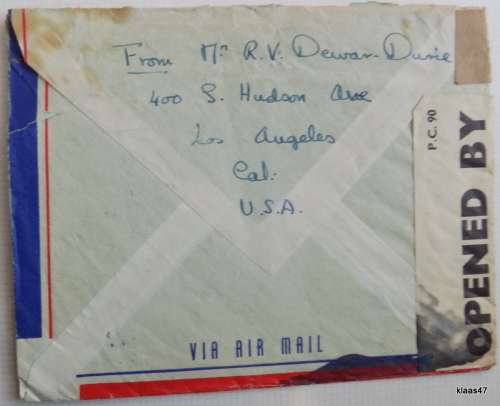 From Mr R.V. Dewar-Durie
400 S. Hudson Ave
Los Angeles
Cal:
U.S.A.
P.C. 90
OPENED BY
VIA AIR MAIL
klaas47